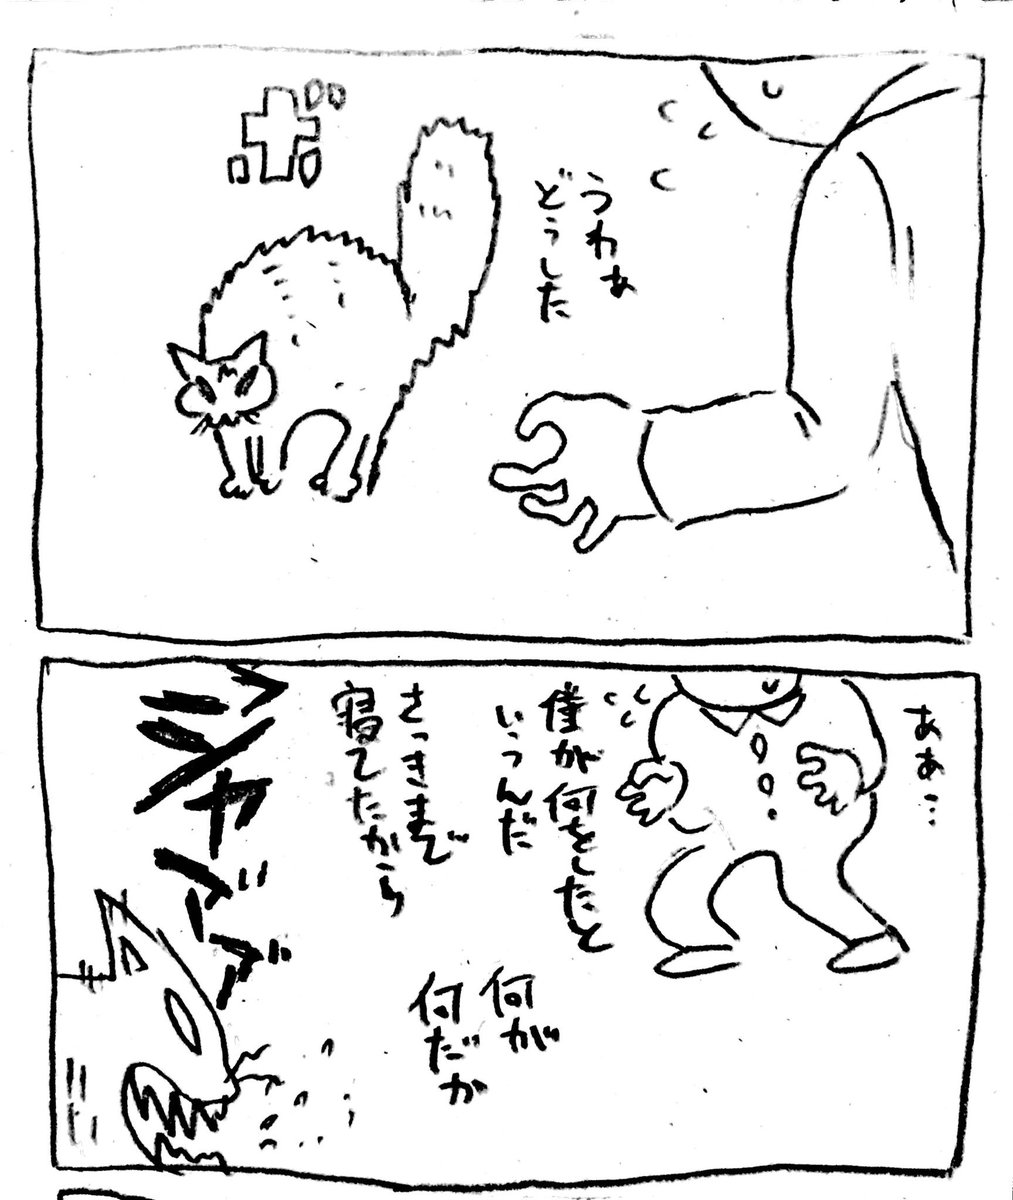 うわぁ
どうした
ボ
あぁ…
僕が何をしたと
いうんだ
さっきまで
寝てたから
何が
何だか
シャア゛ア゛